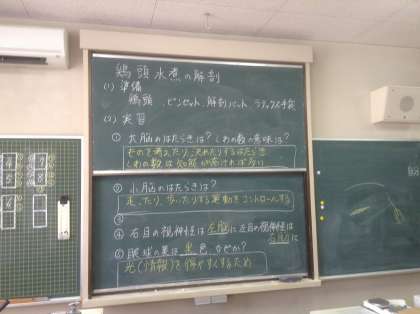 鶏頭水煮の解剖
(1) 準備
鶏頭、ピンセット、解剖バット、ラテックス手袋
(2) 実習
① 大脳のはたらきは? しわの数の意味は?
ものを考えたり、決めたりするはたらき
しわの数は知能が高ければ多い
② 小脳のはたらきは?
走ったり、歩いたりする運動をコントロールする
④ 右目の視神経は左脳に左目の視神経は
右脳に
眼球の裏は黒色 なぜか?
光(情報)を
するため